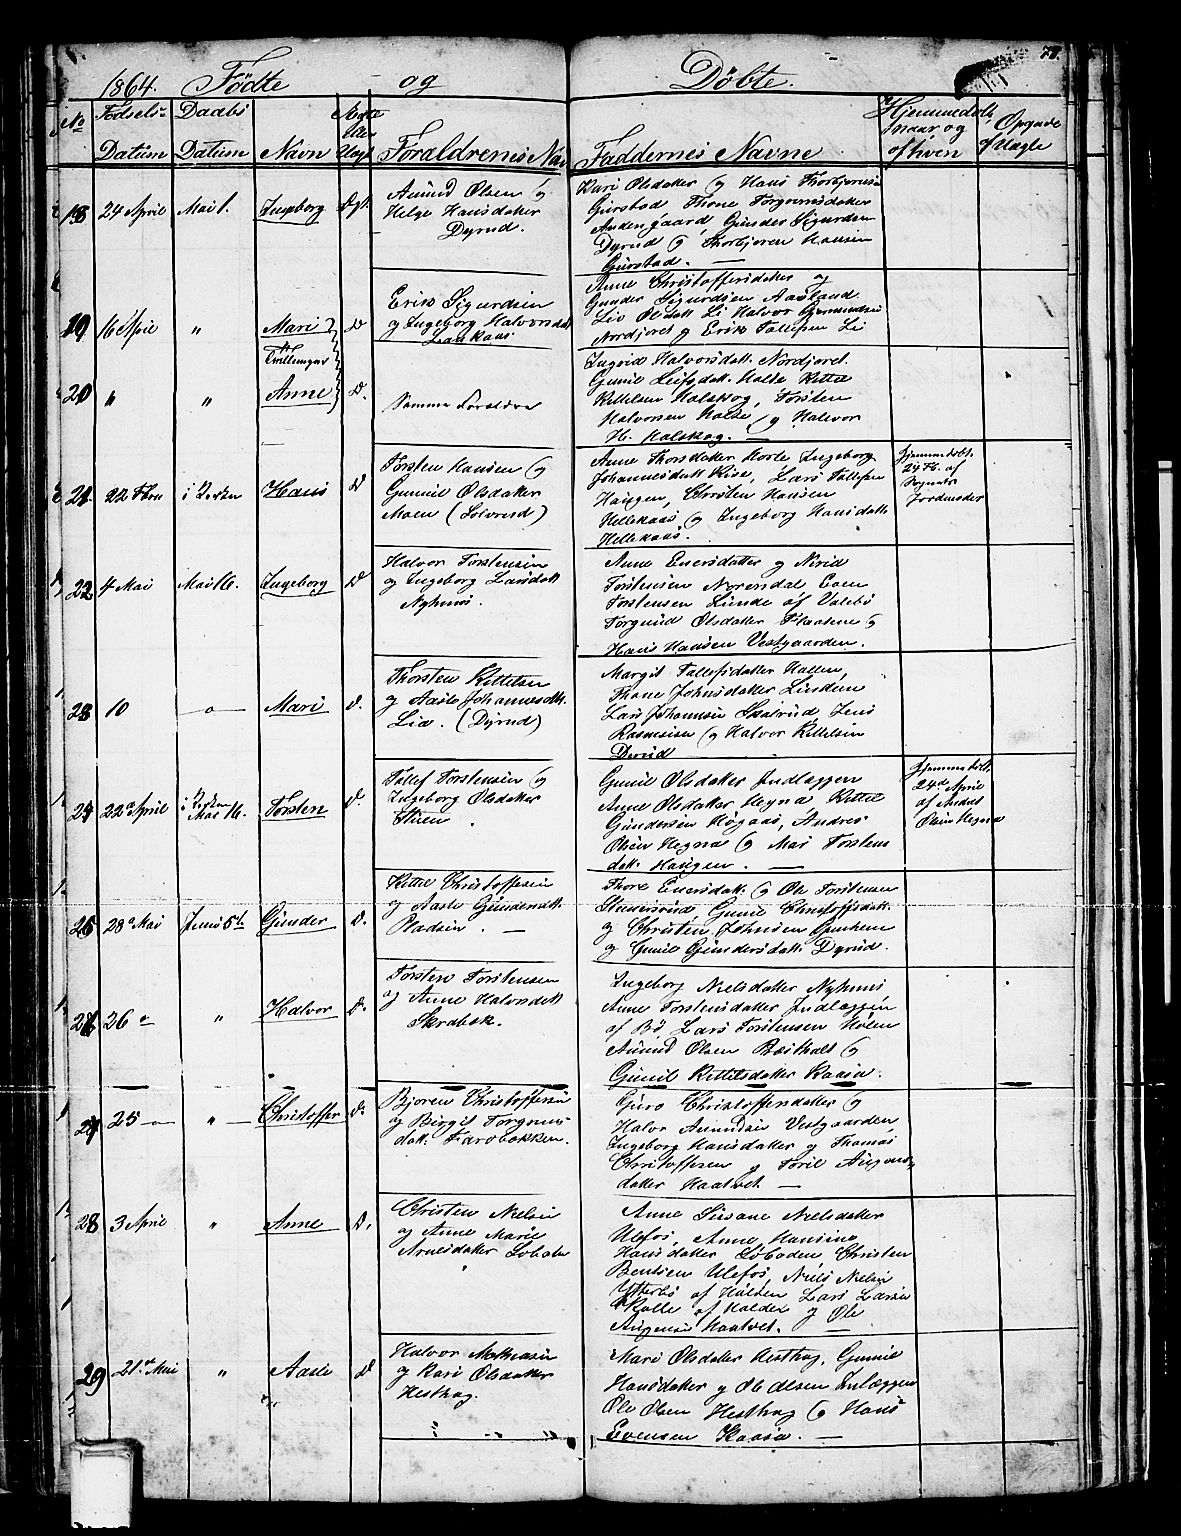 1864. Fødte og Døbte.
No Fødsels- Datum Daabs Datum Navn Ægte eller Uægt Foraldrenes Nav Faddernes Navne Hjemmedøbt naar og af hven Opgave af Uagte
18 24 April Mai 1. Ingeborg Ægt. Amund Olsen og
Helge Hansdatter
Dyrud.
Kari Olsdatter og Hans Thorbjornsen
Gurstad Thone Torgrimsdatter
Andengaard Gunder Sigurdsen
Dyrud og Thorbjoren Hansen
Gurstad. —
19 16 April " Mari Do
Erik Sigurdsen
og Ingeborg Halvorsdatt
Laaskaas
Anne Christoffersdatter og
Gunder Sigurdsen Aasland
Liv Olsdatt Li Halvor Gunnulvsen
Nordjoret og Erik Tallefsen Li
Tvillenger
20 " " Anne D.
Samme Foraldre
Ingrid Halvorsdatt. Nordjoret.
Gunil Leifsdatt. Holte Kittel
Kittelsen Halskog, Torsten
Halvorsen Holte og Halvor
H. Halskog. —
21 22 Fbru i Kirken Hans D
Torsten Hansen og
Gunnil Olsdatter
Moen (Solverud)
Anne Thorsdatter Ingeborg
Johannesdatt Kise, Lars Tallefsen
Haugen, Christen Hansen
Hellekaas og Ingeborg Hansdatt.
Hellekaas.
Hjemmedøbt.
24 Fb. af
Sognets
Jordmoder
22 4 Mai Mai 16. Ingeborg D
Halvor Torstensen
og Ingeborg Larsdatt
Nyhuus.
Anne Enersdatter og Nirid
Torstensen Norensdal Even
Torstensen Lunde af Valebø
Torgund Olsdatter og
Hans Hansen Vestgaarden.
23 10 — Mari D.
Thorsten Kittelsen
og Aaste Johannesdatt.
Lia. (Dyrud)
Margit Tallefsdatter Hallen,
Thone Johnsdatter Lindem
Lars Johannsen Jens
Rasmussen og Halvor Kittelsen
Dyrud
24 22a April i Kirken Mai 16. Torsten D.
Tallef Torstensen og
Ingeborg Olsdatter
Stuen.
Gunil Olsdatter Indlaggen
Anne Olsdatter Hegna Kittel
Gundersen Høgaas, Andres
Olsen Hegna og Mari Torstens
datt. Haugen. —
Hjemmedøbt.
24d April
af Andres
Olsen Hegna
25 28a Mai Juni 5te Gunder D.
Kittel Christoffersen
og Aaste Gundersdatt.
Pladsen. —
Thore Enersdatt. og Ole Torstensen
Gunil Christoffsdatt.
og Christen Johnsen
og Gunil Gundersdatt. Dyrud.
26 26 — " Halvor D.
Torsten Torstensen
og Anne Halvorsdatt
Skrabek.
Ingeborg Nielsdatter Nyhuus
Anne Torstensdatter Indlaggen
af Bø Lars Torstensen Holen
Amund Olsen og
Gunil Kittilsdatter Kaasa.
27 25 — " — Christoffer D.
Bjoren Christoffersen
og Birgit Torgrims
datt. Farobakken.
Guro Christoffersdatter og
Halvor Amundsen Vestgaarden
Ingeborg Hansdatter og Thomas
Christoffersen og Toril
datter Haatvet. —
28 3 April " Anne D.
Christen Nielsen
og Anne Marie
Arnesdatter
Anne Susane Nielsdatter
Ulefos, Anne Hansine
Hansdatter Christen
Bentsen Ulefos, Niels Nielsen
Ytterbø af Holden Lars Larsen
Kolle af Holden og Ole
Haatvet. —
29 21de Mai " Aaste D
Halvor Mathisen
og Kari Olsdatter
Hesthag.
Mari Olsdatter Hesthag, Gunnil
Hansdatter og Ole Olsen Inlæggen
Ole Olsen Hesthag og Hans
Evensen Kaasa. —